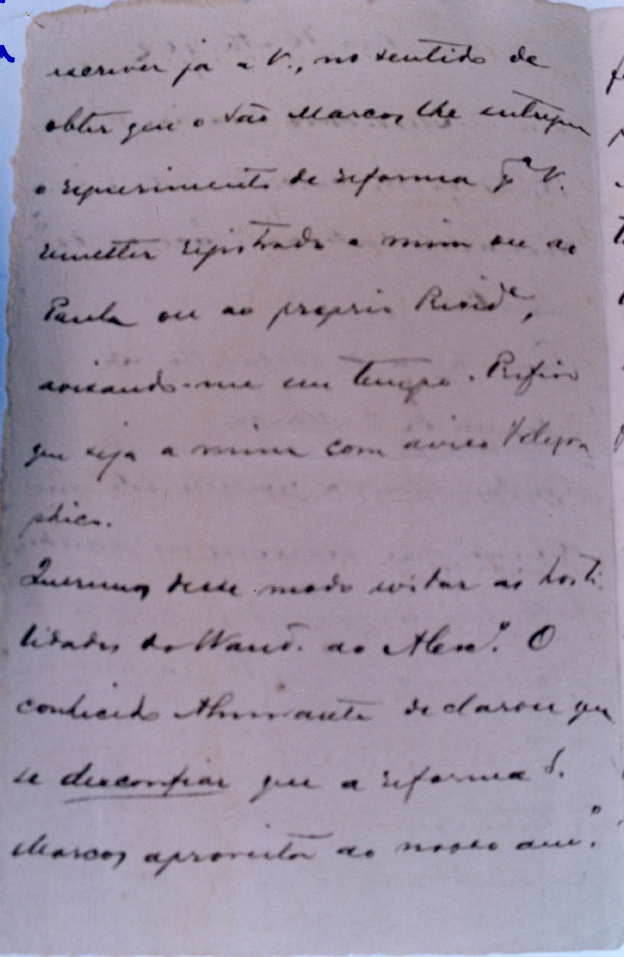 escrever já a V., no sentido de
obter que o São Marcos lhe entregue
o requerimento de reforma pª V.
remetter registrado a mim ou ao
Paula ou ao proprio Presidᵉ,
avisando-me em tempo. Prefiro
que seja a mim com aviso telegra
phico.
Queremos desse modo evitar as hosti
lidades do Wand. ao Alexº. O
conhecido Almirante declarou que
se desconfiar que a reforma S.
Marcos aproveita ao nosso amº.